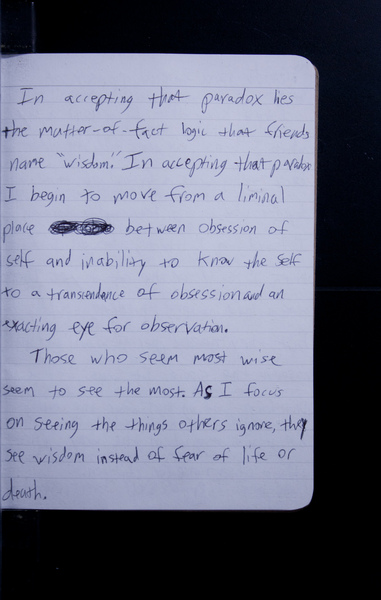 In accepting that paradox lies
the matter-of-fact logic that friends
name "wisdom." In accepting that paradox
I begin to move from a liminal
place between obsession of
self and inability to know the self
to a transcendance of obsession and an
exacting eye for observation.
Those who seem most wise
seem to see the most. As I focus
on seeing the things others ignore, they
see wisdom instead of fear of life or
death.